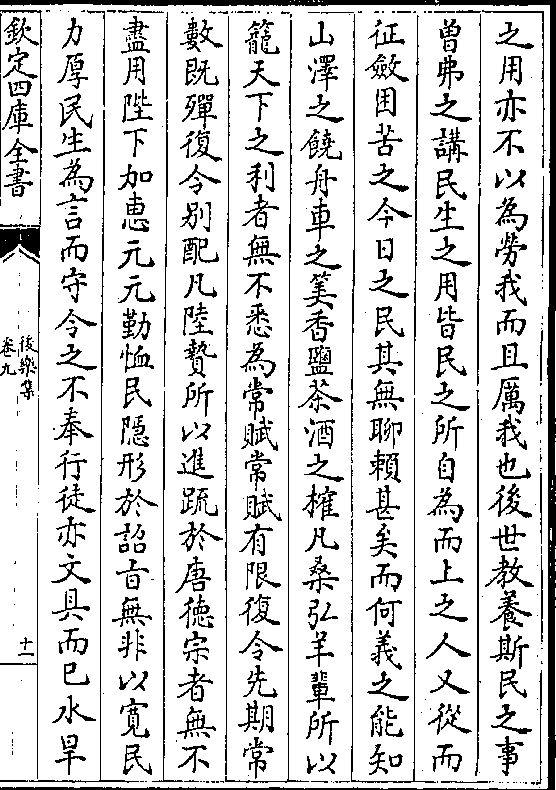 之用亦不以為勞我而且厲我也後世教養斯民之事
曽弗之講民生之用皆民之所自為而上之人又從而
征斂困苦之今日之民其無聊賴甚矣而何義之能知
山澤之饒舟車之筭香鹽茶酒之榷凡桑弘羊輩所以
籠天下之利者無不悉為常賦常賦有限復令先期常
數既殫復令别配凡陸贄所以進䟽於唐德宗者無不
盡用陛下加惠元元勤恤民隠形於詔㫖無非以寛民
力厚民生為言而守令之不奉行徒亦文具而已水旱
欽定四庫全書
後樂集
卷九
十一